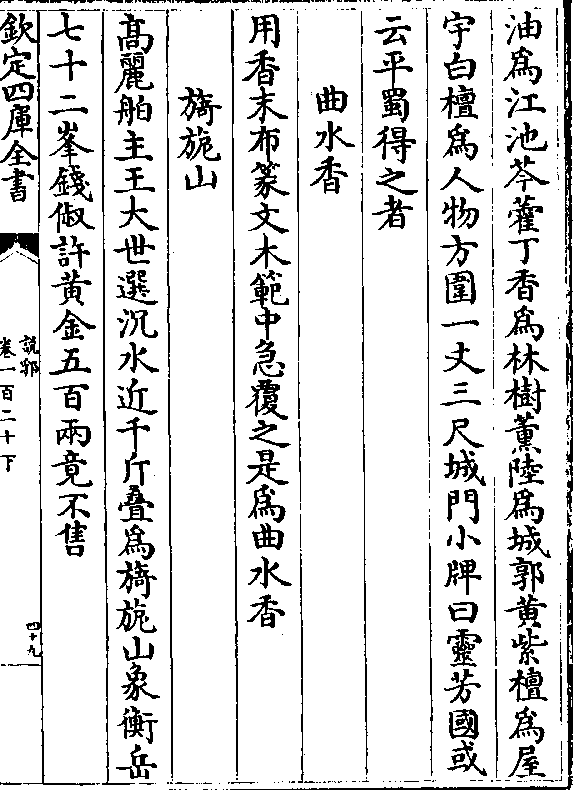 油爲江池芩藿丁香爲林樹薰陸爲城郭黄紫檀爲屋
宇白檀爲人物方圍一丈三尺城門小牌曰靈芳國或
云平蜀得之者
曲水香
用香末布篆文木範中急覆之是爲曲水香
旖旎山
髙麗舶主王大世選沉水近千斤疊爲旖旎山象衡岳
七十二峯錢俶許黄金五百兩竟不售
欽定四庫全書
說郛
卷一百二十下
四十九